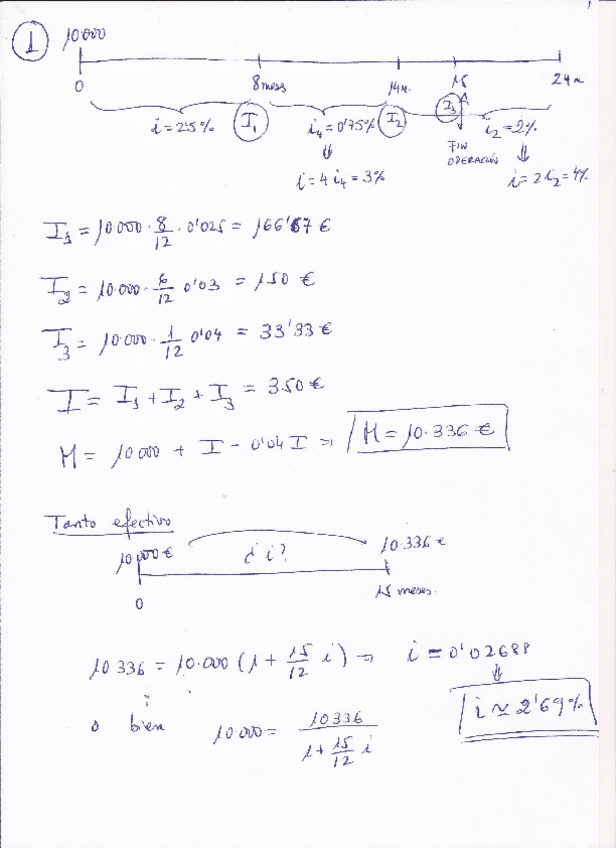 1
① 10000
0 8 meses 14 m. 15 24 m
i = 2'5% I₁ i₄ = 0'75% I₂ I₃ i₂ = 2%
⇓ FIN OPERACIÓN ⇓
i = 4 i₄ = 3% i = 2 i₂ = 4%
I₁ = 10000 · 8/12 · 0'025 = 166'67 €
I₂ = 10.000 · 6/12 0'03 = 150 €
I₃ = 10.000 · 1/12 0'04 = 33'33 €
I = I₁ + I₂ + I₃ = 350 €
M = 10000 + I - 0'04 I ⇒ M = 10.336 €
Tanto efectivo
10.000 € ¿i? 10.336 €
0 15 meses.
10336 = 10.000 (1 + 15/12 i) ⇒ i = 0'02688
⇓
o bien 10.000 = 10336 / (1 + 15/12 i) i ≃ 2'69%